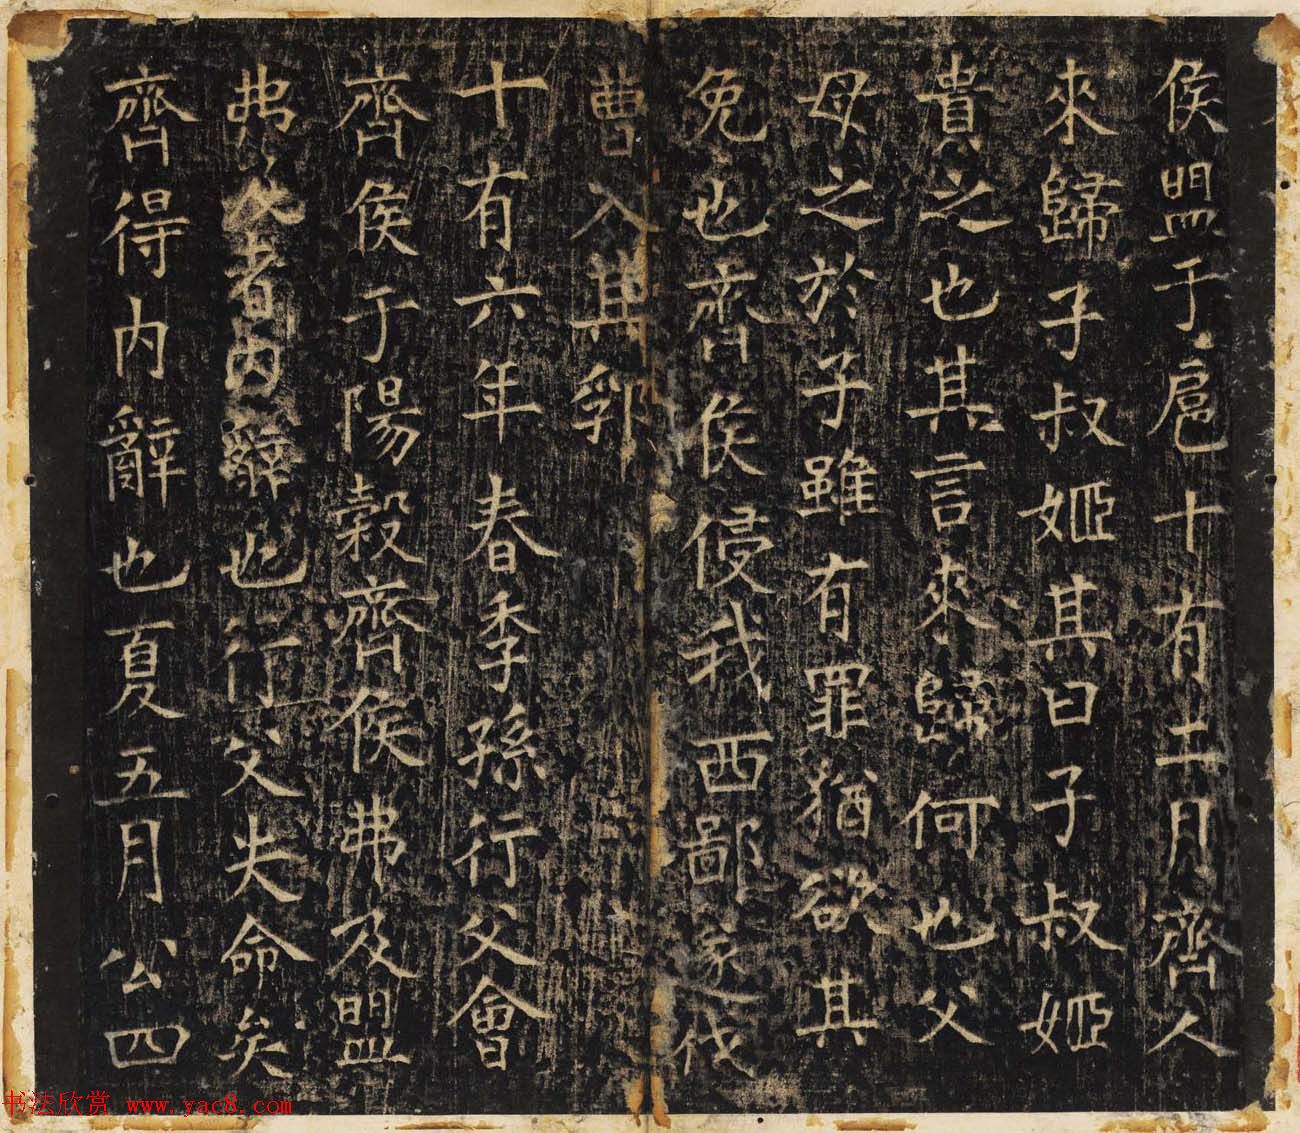 侯盟于扈十有二月齊人
來歸子叔姬其曰子叔姬
貴之也其言來歸何也父
母之於子雖有罪猶欲其
免也齊侯侵我西鄙遂伐
曹入其郛
十有六年春季孫行父會
齊侯于陽穀齊侯弗及盟
弗及者內辭也行父失命矣
齊得內辭也夏五月公四
书法欣赏 www.yac8.com